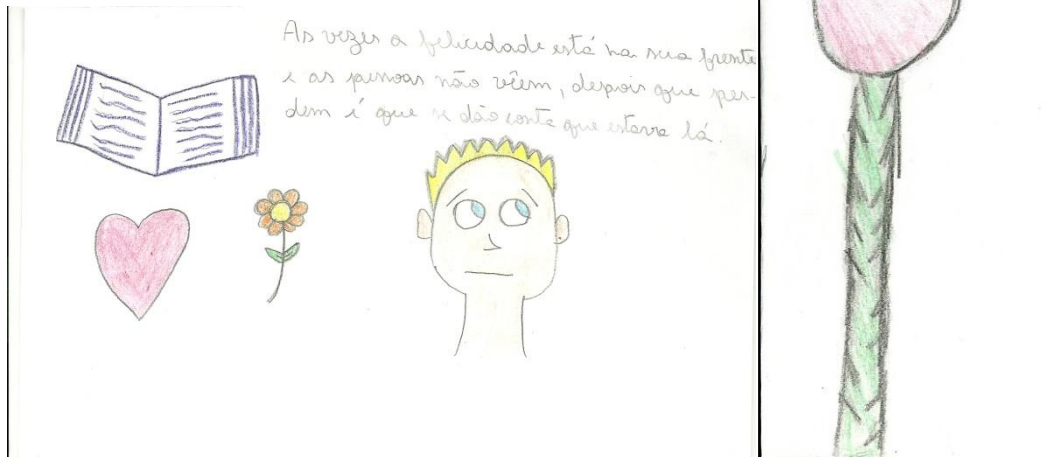 As vezes a felicidade está na sua frente
e as pessoas não vêem, despois que per-
dem é que se dão conta que estava lá.